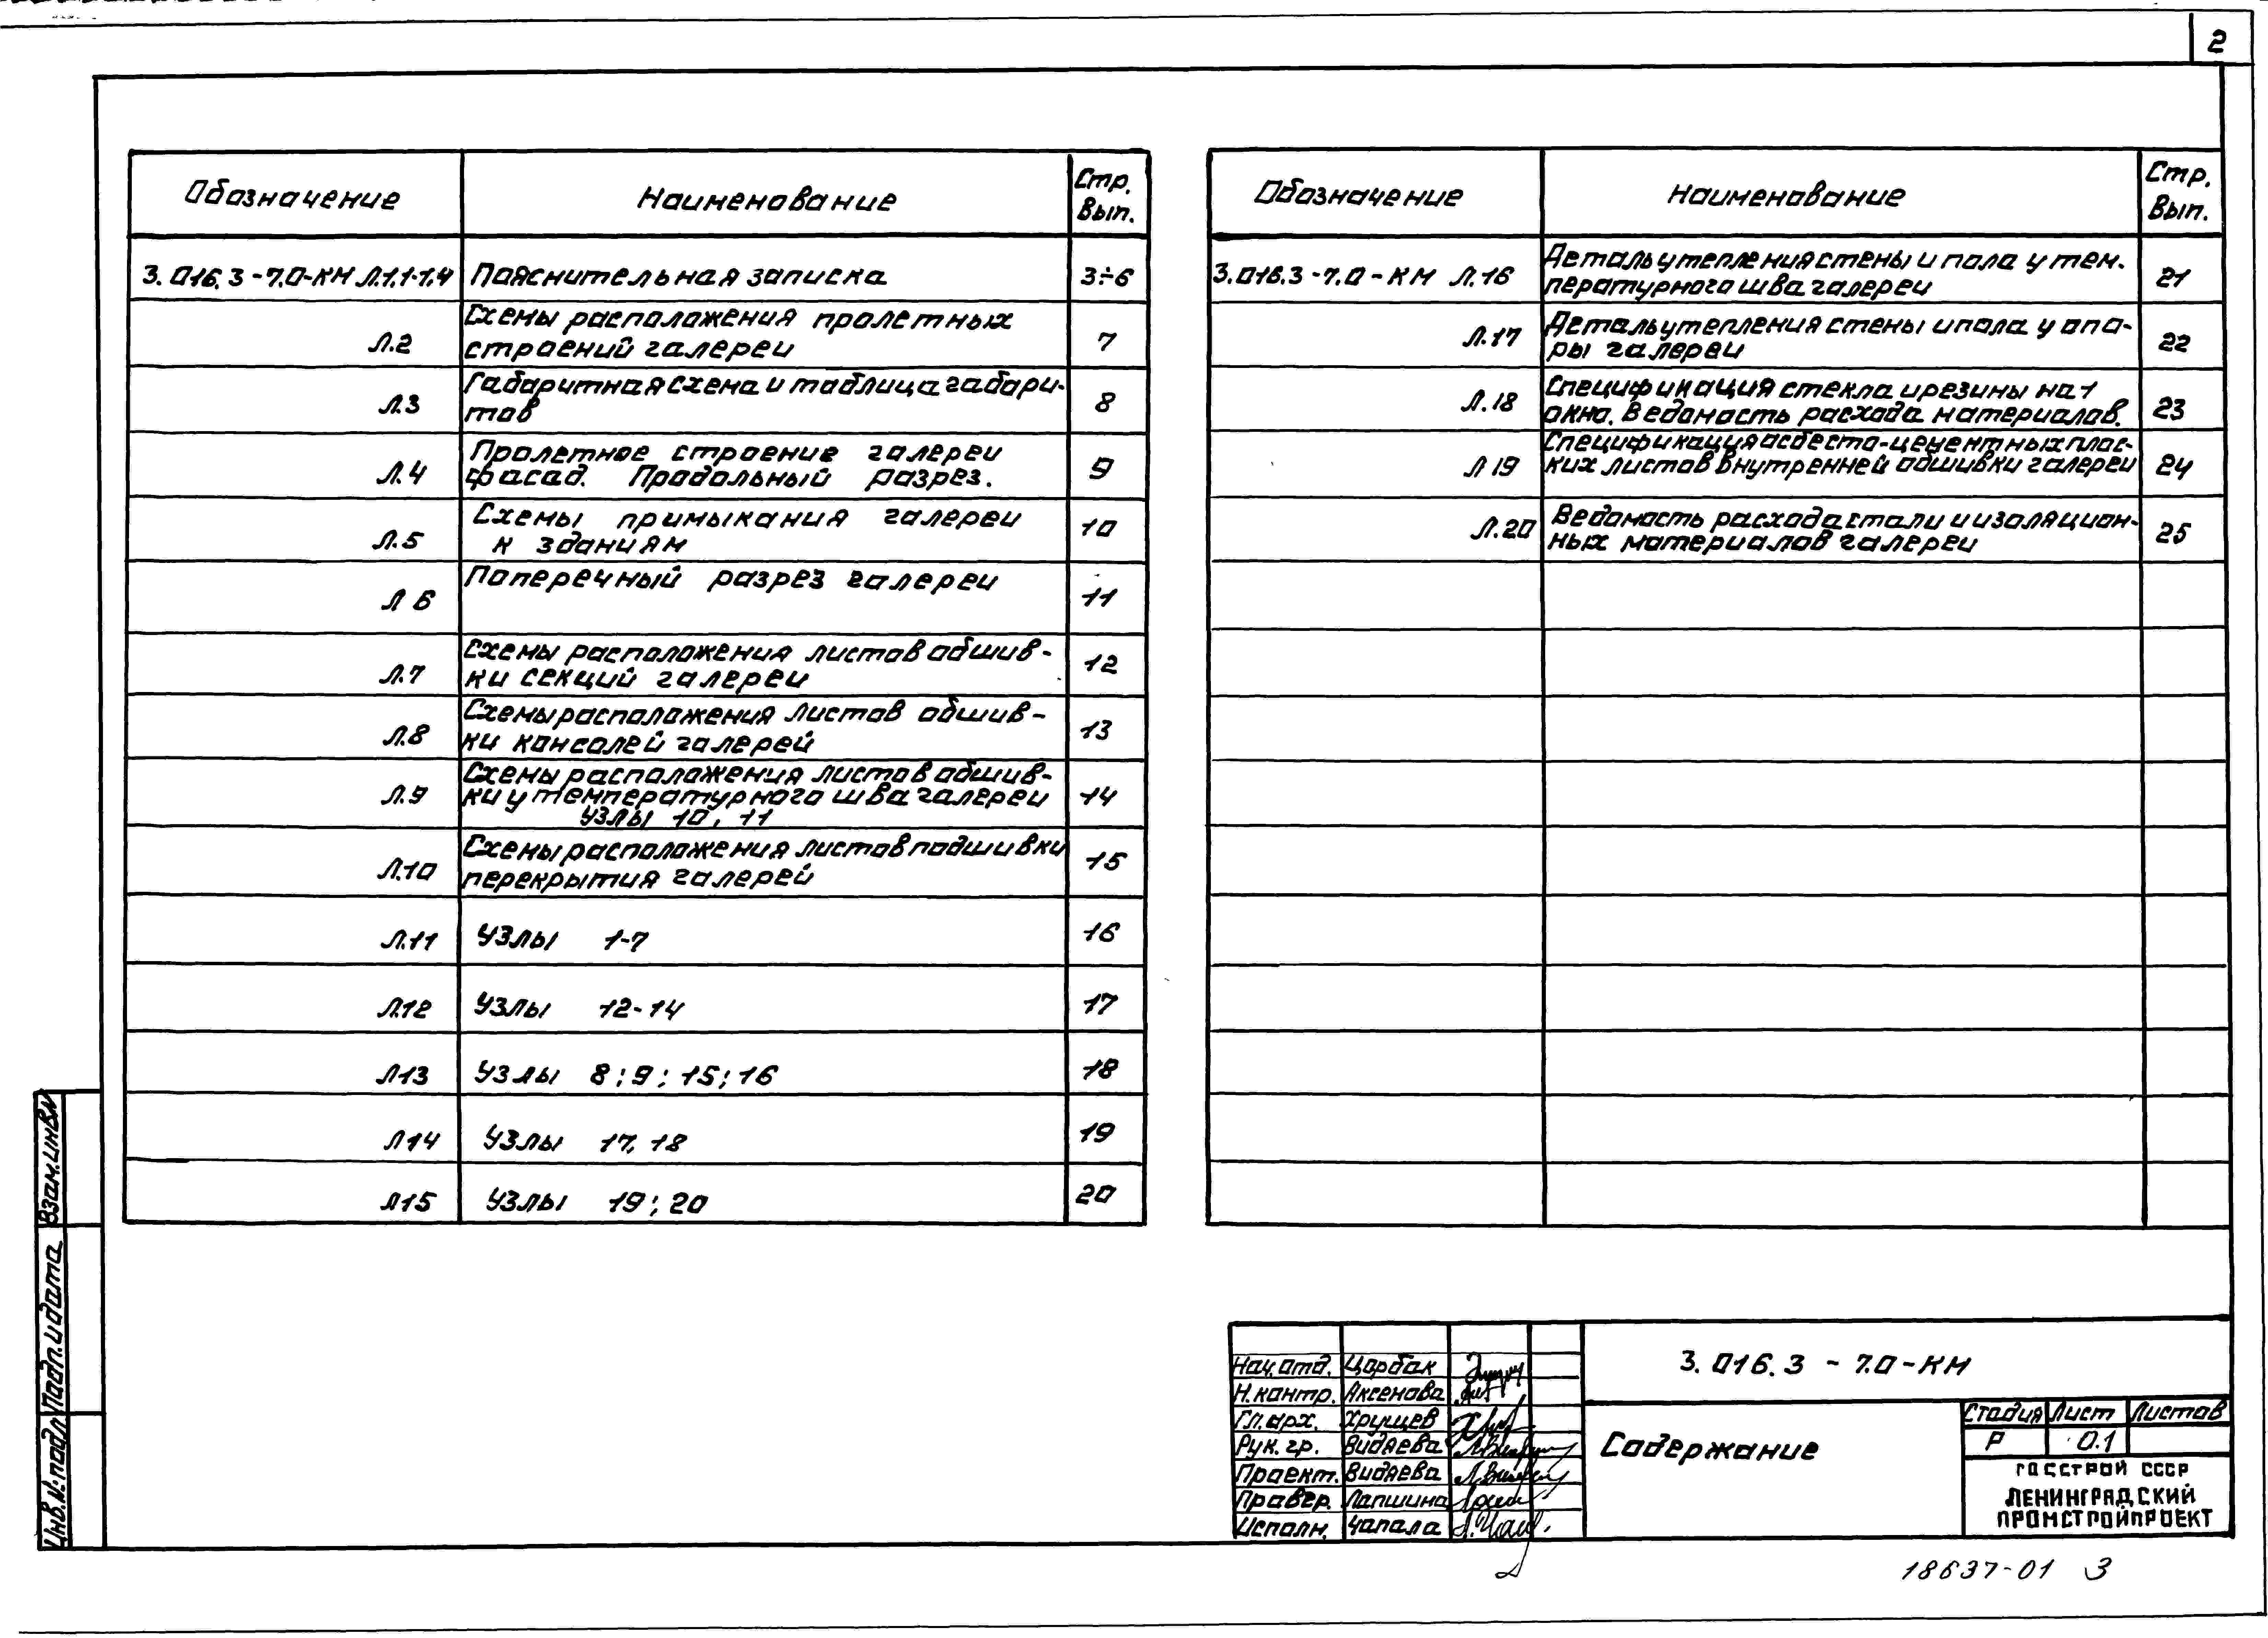 2
Обозначение
Наименование
Стр.
Вып.
3.016.3-7.0-КМ Л.1.1-1.4
Пояснительная записка
3÷6
Л.2
Схемы расположения пролетных
строений галереи
7
Л.3
Габаритная схема и таблица габари-
тов
8
Л.4
Пролетное строение галереи
фасад. Продольный разрез.
9
Л.5
Схемы примыкания галереи
к зданиям
10
Л 6
Поперечный разрез галереи
11
Л.7
Схемы расположения листов обшив-
ки секций галереи
12
Л.8
Схемы расположения листов обшив-
ки консолей галерей
13
Л.9
Схемы расположения листов обшив-
ки у температурного шва галереи
узлы 10, 11
14
Л.10
Схемы расположения листов подшивки
перекрытия галерей
15
Л.11
Узлы 1-7
16
Л.12
Узлы 12-14
17
Л13
Узлы 8; 9; 15; 16
18
Л14
Узлы 17, 18
19
Л15
Узлы 19; 20
20
Обозначение
Наименование
Стр.
Вып.
3.016.3-7.0-КМ Л.16
Деталь утепления стены и пола у тем-
пературного шва галереи
21
Л.17
Деталь утепления стены и пола у опо-
ры галереи
22
Л.18
Спецификация стекла и резины на 1
окно. Ведомость расхода материалов.
23
Л 19
Спецификация асбесто-цементных плос-
ких листов внутренней обшивки галереи
24
Л.20
Ведомость расхода стали и изоляцион-
ных материалов галереи
25
Взам.инв№
Подп. и дата
Инв.№ подл
Нач.отд. Царбак
Н.контр. Аксенова
Гл.арх. Хрущев
Рук. гр. Видяева
Проект. Видяева
Провер. Лапшина
Исполн. Чапала
3.016.3 - 7.0-КМ
Содержание
Стадия Лист Листов
Р 0.1
ГОССТРОЙ СССР
ЛЕНИНГРАДСКИЙ
ПРОМСТРОЙПРОЕКТ
18637-01 3